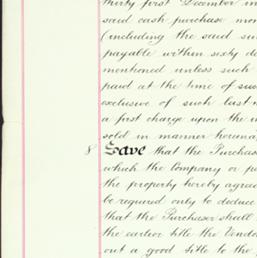 thirty first December in
said cash purchase mon
(including the said su
payable within sixty da
mentioned unless such
paid at the time of suc
exclusive of such last m
a first charge upon the u
sold in manner hereina
8 Save that the Purchase
which the Company or pu
the property hereby agree
be required only to deduce
that the Purchaser shall
the earlier title the Vendo
out a good title to the